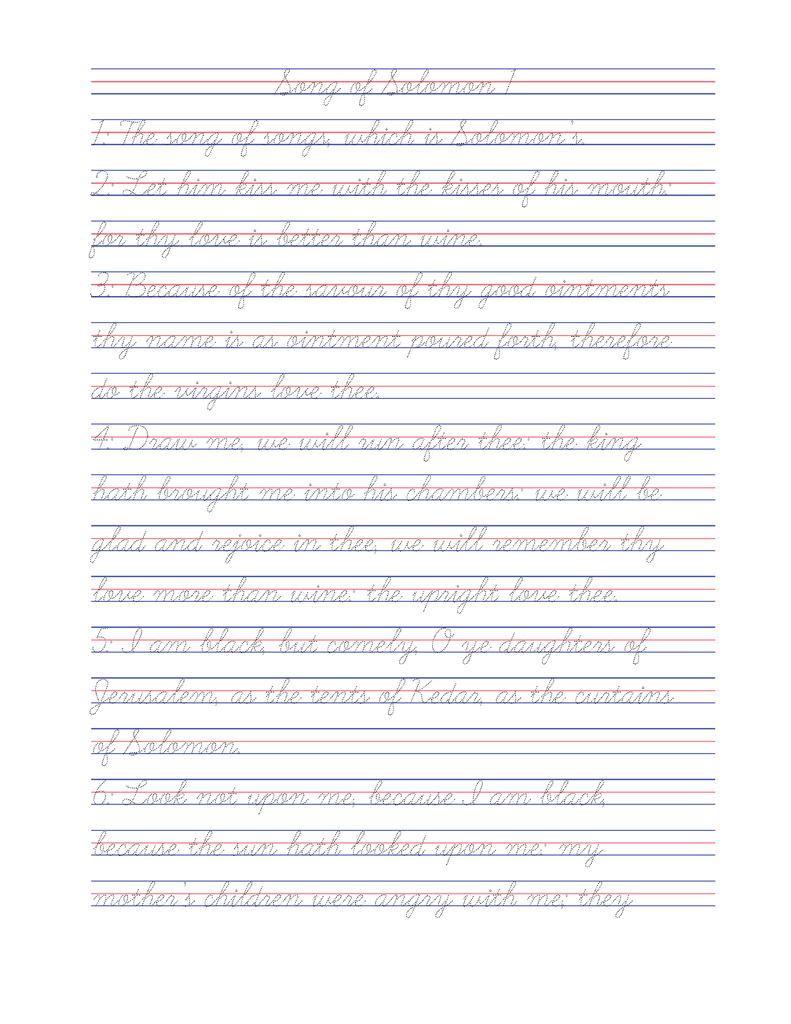 Song of Solomon 1
1: The song of songs, which is Solomon's.
2: Let him kiss me with the kisses of his mouth:
for thy love is better than wine.
3: Because of the savour of thy good ointments
thy name is as ointment poured forth, therefore
do the virgins love thee.
4: Draw me, we will run after thee: the king
hath brought me into his chambers: we will be
glad and rejoice in thee, we will remember thy
love more than wine: the upright love thee.
5: I am black, but comely, O ye daughters of
Jerusalem, as the tents of Kedar, as the curtains
of Solomon.
6: Look not upon me, because I am black,
because the sun hath looked upon me: my
mother's children were angry with me; they